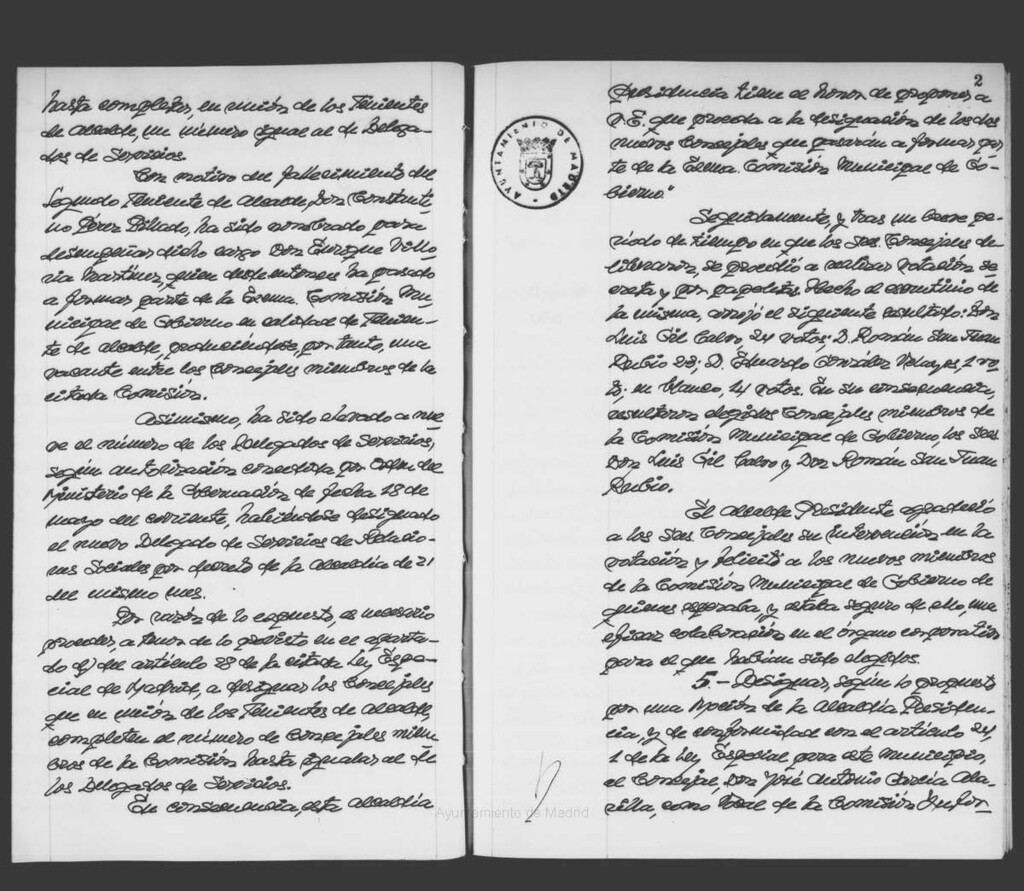 hasta completar, en unión de los Tenientes
de Alcalde, un número igual al de Delega-
dos de Servicios.
Con motivo del fallecimiento del
Segundo Teniente de Alcalde, Don Constanti-
no Pérez Pillado, ha sido nombrado para
desempeñar dicho cargo Don Enrique Villo-
ria Martínez, quien desde entonces ha pasado
a formar parte de la Excma. Comisión Mu-
nicipal de Gobierno en calidad de Tenien-
te de Alcalde, produciéndose, por tanto, una
vacante entre los Concejales miembros de la
citada Comisión.
Asimismo, ha sido elevado a nue-
ve el número de los Delegados de Servicios,
según autorización concedida por Orden del
Ministerio de la Gobernación de fecha 18 de
marzo del corriente, habiéndose designado
el nuevo Delegado de Servicios de Relacio-
nes Sociales por decreto de la Alcaldía de 21
del mismo mes.
Por razón de lo expuesto, es necesario
proceder, a tenor de lo previsto en el aparta-
do del artículo 28 de la citada Ley Espe-
cial de Madrid, a designar los Concejales
que en unión de los Tenientes de Alcalde,
completen el número de Concejales miem-
bros de la Comisión hasta igualar al de
los Delegados de Servicios.
En consecuencia, esta Alcaldía
2
Presidencia tiene el honor de proponer a
V.E. que proceda a la designación de los dos
nuevos Concejales que pasarán a formar par-
te de la Excma. Comisión Municipal de Go-
bierno."
Seguidamente, y tras un breve pe-
ríodo de tiempo en que los Sres. Concejales de-
liberaron, se procedió a realizar votación se-
creta y por papeletas. Hecho el escrutinio de
la misma, arrojó el siguiente resultado: Don
Luis Gil Calvo, 24 votos; D. Román San Juan
Rubio 23; D. Eduardo González 1 vo-
to; en blanco, 4 votos. En su consecuencia,
resultaron elegidos Concejales miembros de
la Comisión Municipal de Gobierno, los Sres.
Don Luis Gil Calvo y Don Román San Juan
Rubio.
El Alcalde Presidente agradeció
a los Sres. Concejales su intervención en la
votación y felicitó a los nuevos miembros
de la Comisión Municipal de Gobierno de
quienes esperaba, y estaba seguro de ello, una
eficaz colaboración en el órgano corporativo
para el que habían sido elegidos.
5.- Designar, según lo propuesto
por una Moción de la Alcaldía Presiden-
cia, y de conformidad con el artículo 24,
1 de la Ley Especial para este Municipio,
al Concejal, Don José Antonio García Ala-
rilla, como Vocal de la Comisión Infor-
AYUNTAMIENTO DE MADRID
Ayuntamiento de Madrid